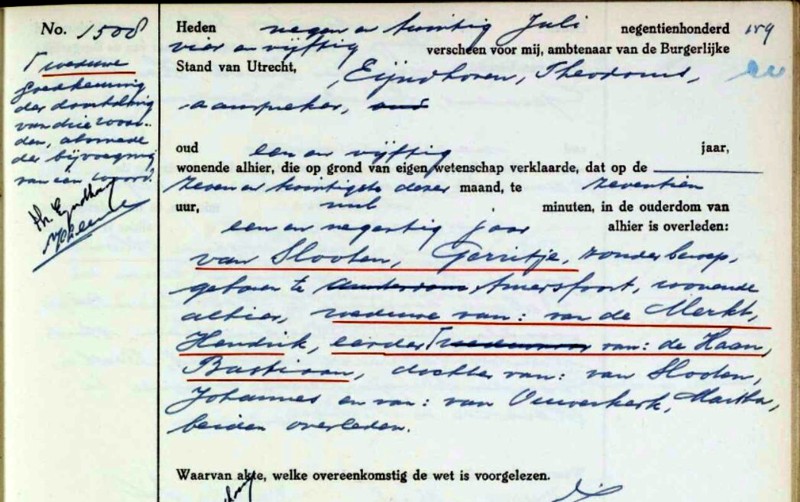 No. 1508
weduwe
Goedkeuring
der doorhaling
van drie woor-
den, alsmede
der bijvoeging
van één woord.
Th. Eyndhoven
Heden negen en twintig Juli negentienhonderd 159
vier en vijftig verscheen voor mij, ambtenaar van de Burgerlijke
Stand van Utrecht, Eijndhoven, Theodorus,
aanspreker, oud
oud een en vijftig jaar,
wonende alhier, die op grond van eigen wetenschap verklaarde, dat op de
zeven en twintigste dezer maand, te zeventien
uur, nul minuten, in de ouderdom van
een en negentig jaar alhier is overleden:
van Slooten, Gerritje, zonder beroep,
geboren te Amsterdam Amersfoort, wonende
alhier, weduwe van: van de Merkt,
Hendrik, eerder van: de Haan,
Bastiaan, dochter van: van Slooten,
Johannes en van: van Ouwerkerk, Martha,
beiden overleden.
Waarvan akte, welke overeenkomstig de wet is voorgelezen.